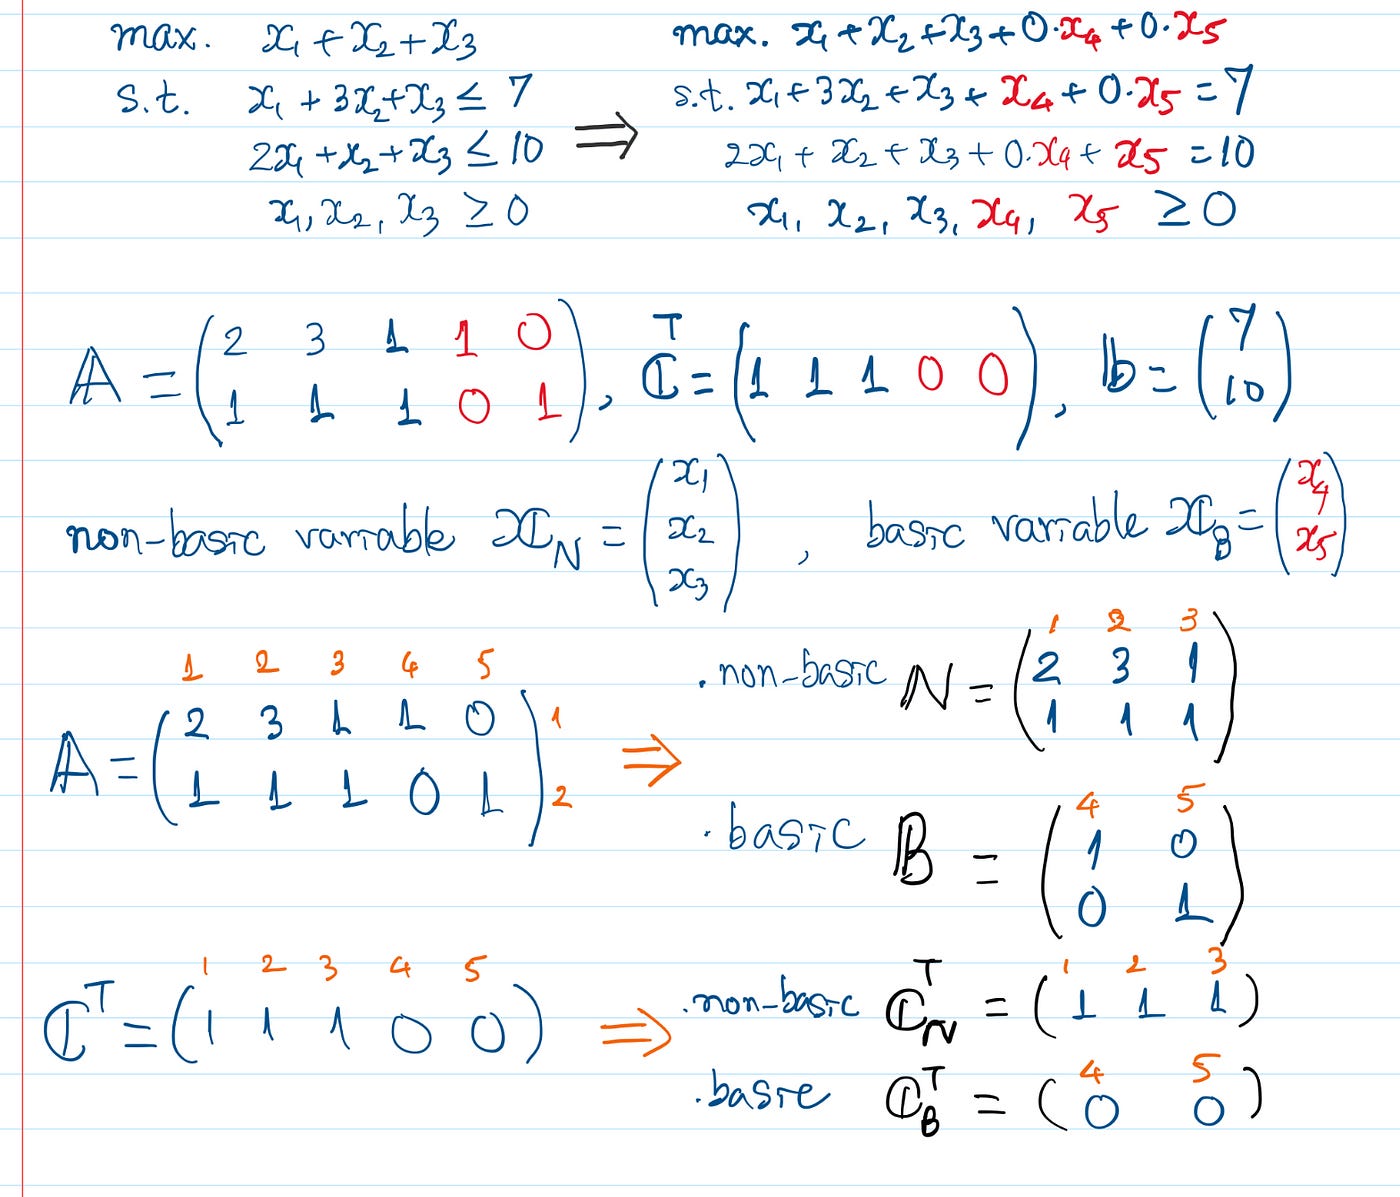 max. x₁ + x₂ + x₃
s.t. x₁ + 3x₂ + x₃ ≤ 7
2x₁ + x₂ + x₃ ≤ 10
x₁, x₂, x₃ ≥ 0
⇒
max. x₁ + x₂ + x₃ + 0·x₄ + 0·x₅
s.t. x₁ + 3x₂ + x₃ + x₄ + 0·x₅ = 7
2x₁ + x₂ + x₃ + 0·x₄ + x₅ = 10
x₁, x₂, x₃, x₄, x₅ ≥ 0
𝔸 = (2 3 1 1 0
1 1 1 0 1), ℂᵀ = (1 1 1 0 0), 𝕓 = (7
10)
non-basic variable x_N = (x₁
x₂
x₃), basic variable x_B = (x₄
x₅)
1 2 3 4 5
𝔸 = (2 3 1 1 0 1
1 1 1 0 1) 2
⇒
1 2 3
· non-basic N = (2 3 1
1 1 1)
4 5
· basic B = (1 0
0 1)
1 2 3 4 5
ℂᵀ = (1 1 1 0 0) ⇒
1 2 3
· non-basic ℂ_Nᵀ = (1 1 1)
4 5
· basic ℂ_Bᵀ = (0 0)